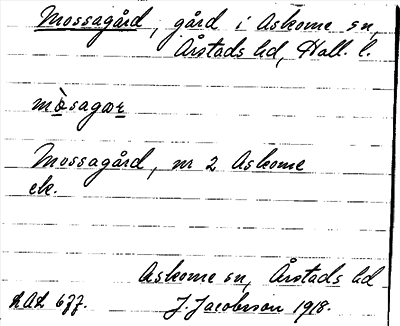 Mossagård, gård i Askome sn,
Årstads hd, Hall. l.
Mossagård, nr 2 Askome
ek.
Askome sn, Årstads hd
J. Jacobsson 1918.